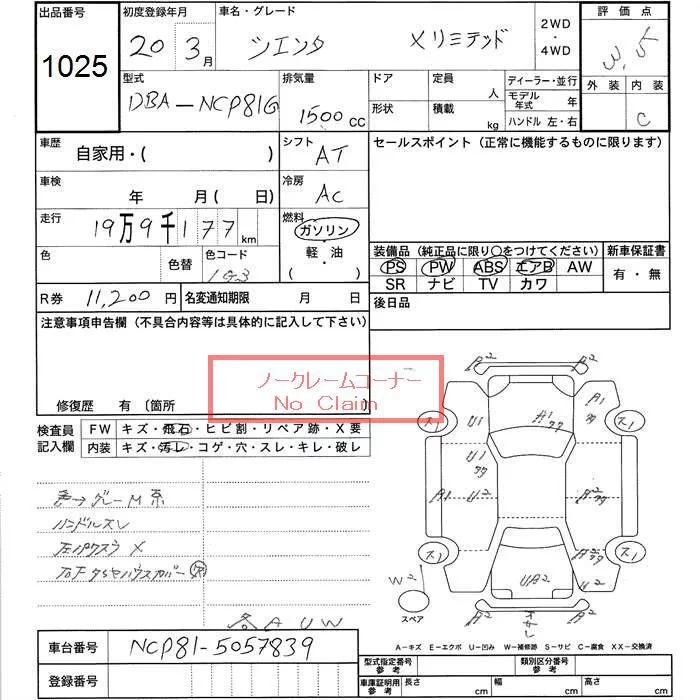 出品番号 1025
初度登録年月 20 3月
車名・グレード シエンタ Xリミテッド
2WD ・ 4WD
評価点 3.5
外装 内装 C
型式 DBA-NCP81G
排気量 1500 CC
ドア 形状
定員 人
積載 kg
ディーラー・並行
モデル年式 年
ハンドル 左・右
車歴 自家用・( )
シフト AT
セールスポイント (正常に機能するものに限ります)
車検 年 月( 日)
冷房 AC
走行 19万9千177km
燃料 ガソリン・軽油・( )
色 色替 色コード
装備品 (純正品に限り○をつけてください)
新車保証書 有・無
PS PW ABS エアB AW
SR ナビ TV カワ
R券 11,200円
名変通知期限 月 日
後日品
注意事項申告欄 (不具合内容等は具体的に記入して下さい)
ノークレームコーナー
No Claim
修復歴 有 〔箇所
検査員記入欄
FW キズ・飛石・ヒビ割・リペア跡・X要
内装 キズ・汚レ・コゲ・穴・スレ・キレ・破レ
色→グレーM系
ハンドルスレ
A2 A2
A1 U1 A1
U1
A1 U2
ス1 ス1
ス1 ス1
W2
UA2
スペア
A2 A2
AUW
A-キズ E-エクボ U-凹み W-補修跡 S-サビ C-腐食 XX-交換済
車台番号 NCP81-5057839
登録番号
型式指定番号 参考
類別区分番号 参考
車庫証明用 参考 長さ cm 幅 cm 高さ cm